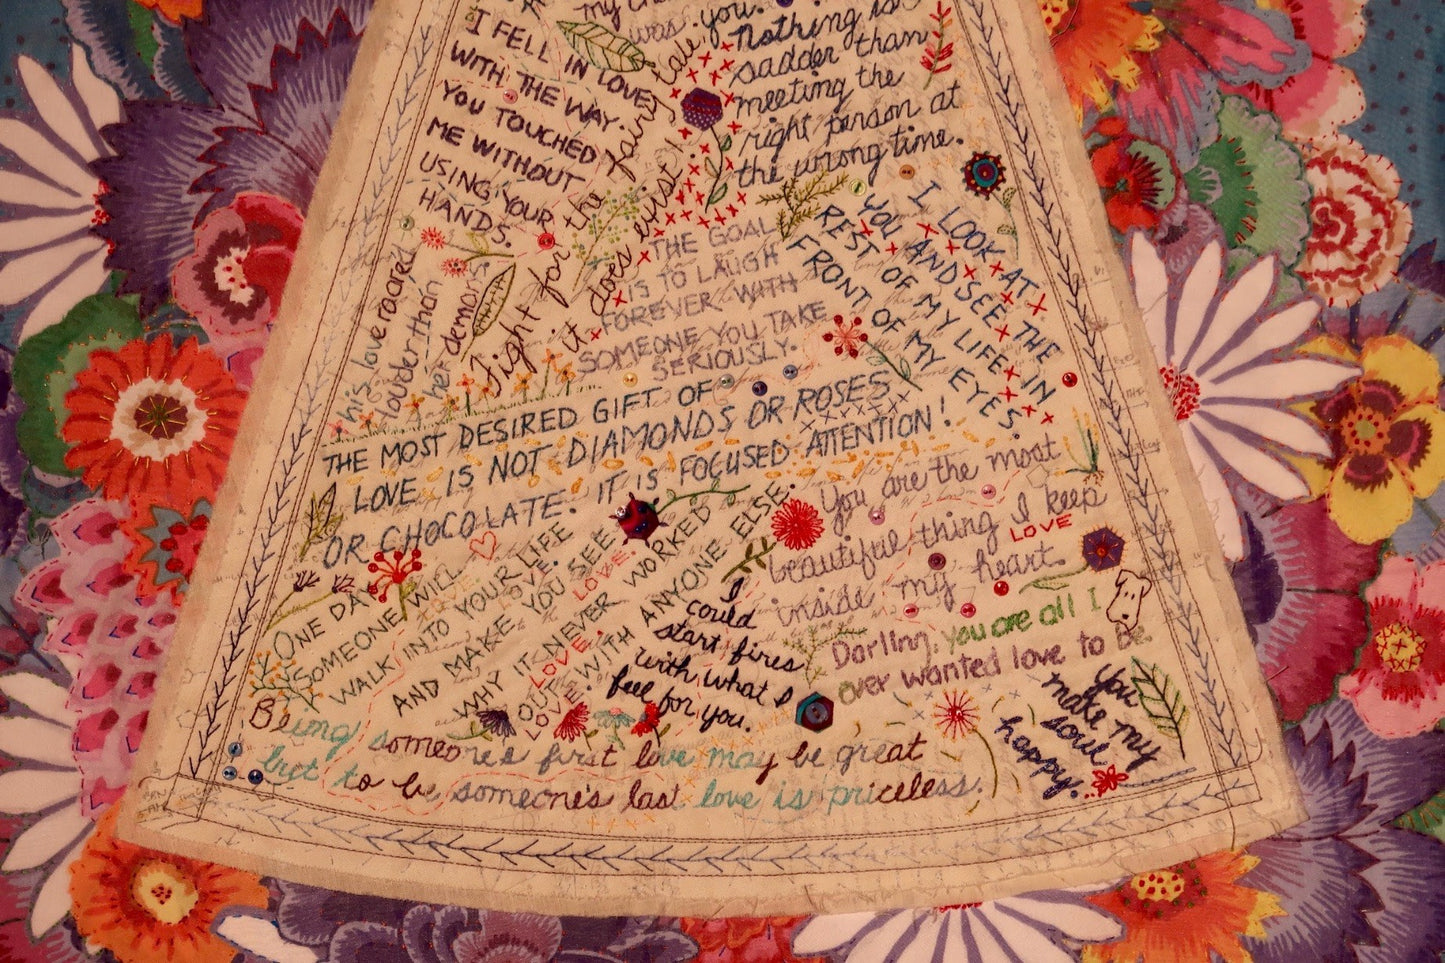 my
was you.
I FELL IN LOVE
WITH THE WAY
YOU TOUCHED
ME WITHOUT
USING YOUR
HANDS.
Nothing is
sadder than
meeting the
right person at
the wrong time.
Fight for the fairy tale
it does exist
his love roared
louder than
her demons
THE GOAL
IS TO LAUGH
FOREVER WITH
SOMEONE YOU TAKE
SERIOUSLY.
I LOOK AT
YOU AND SEE THE
REST OF MY LIFE IN
FRONT OF MY EYES.
THE MOST DESIRED GIFT OF
LOVE IS NOT DIAMONDS OR ROSES
OR CHOCOLATE. IT IS FOCUSED ATTENTION!
You are the most
beautiful thing I keep
inside my heart
LOVE
ONE DAY
SOMEONE WILL
WALK INTO YOUR LIFE
AND MAKE YOU SEE
WHY IT NEVER WORKED
OUT WITH ANYONE ELSE.
LOVE
LOVE
LOVE
LOVE
I
could
start fires
with what I
feel for you.
Darling, you are all I
ever wanted love to Be.
You
make my
soul
happy.
Being someone's first love may be great
but to be someone's last love is priceless.